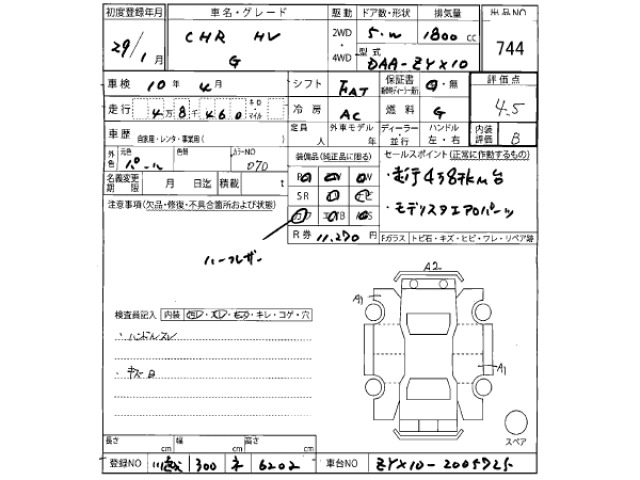 初度登録年月 車名・グレード 駆動 ドア数・形状 排気量 出品NO
29/1月 CHR HV G 2WD・4WD 5・W 1800cc 744
型式 DAA-ZYX10
車検 10年4月 シフト FAT 保証書 有・無 評価点
走行 4万8千460 キロ・マイル 冷房 AC 燃料 G 4.5
車歴 自家用・レンタ・事業用( ) 定員 人 外車モデル 年 ディーラー・並行 ハンドル 左・右 内装評価 B
外色 元色 パール 色替 カラーNO 070 装備品(純正品に限る) セールスポイント(正常に作動するもの)
名義変更期限 月 日迄 積載 t
・走行4.8千km台
SR ナビ
・モデリスタエアロパーツ
注意事項(欠品・修復・不具合箇所および状態)
R券 11,270円
Fガラス トビ石・キズ・ヒビ・ワレ・リペア跡
ハーフレザー
A2
A1
検査員記入 内装 ・スレ・・キレ・コゲ・穴
・ハンドルスレ
A1
・キズB
スペア
長さ cm 幅 cm 高さ cm
登録NO 300 ネ 6202 車台NO ZYX10-2005725